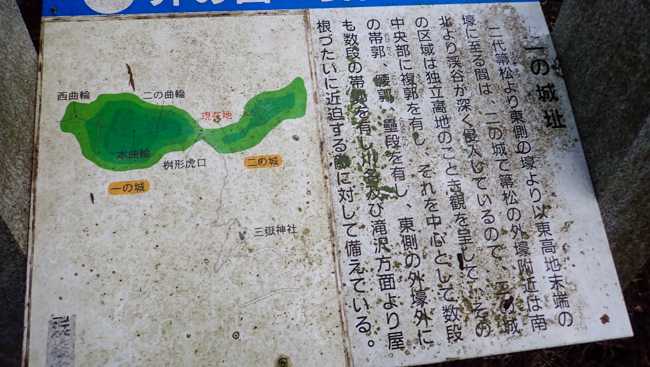 二の城址
二代箒松より東側の壕より以東高地末端の
壕に至る間は、二の城で箒松の外壕附近は南
北より渓谷が深く侵入しているので、二の城
の区域は独立高地のごとき観を呈して、その
中央部に複郭を有し、それを中心として数段
の帯郭、腰郭、壘段を有し、東側の外壕外に
も数段の帯郭を有し川名及び滝沢方面より屋
根づたいに近迫する敵に対して備えている。
西曲輪
二の曲輪
現在地
本曲輪
桝形虎口
一の城
二の城
三嶽神社